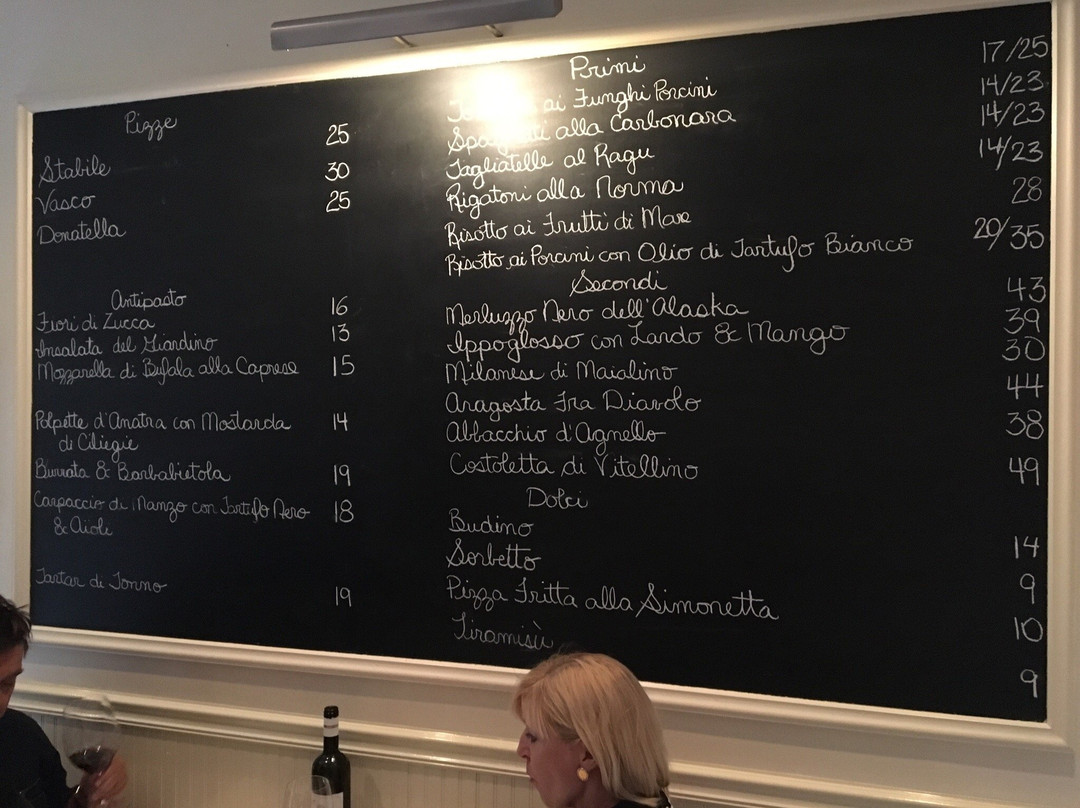 Pizze
Stabile 25
Vasco 30
Donatella 25
Antipasto
Fiori di Zucca 16
Insalata del Giardino 13
Mozzarella di Bufala alla Caprese 15
Polpette d'Anatra con Mostarda 14
di Ciliegie
Burrata & Barbabietola 19
Carpaccio di Manzo con Tartufo Nero 18
& Aioli
Tartar di Tonno 19
Primi
ai Funghi Porcini 17/25
Spaghetti alla Carbonara 14/23
Tagliatelle al Ragu 14/23
Rigatoni alla Norma 14/23
Risotto ai Frutti di Mare 28
Risotto ai Porcini con Olio di Tartufo Bianco 20/35
Secondi
Merluzzo Nero dell'Alaska 43
Ippoglosso con Lardo & Mango 39
Milanese di Maialino 30
Aragosta Fra Diavolo 44
Abbacchio d'Agnello 38
Costoletta di Vitellino 49
Dolci
Budino 14
Sorbetto 9
Pizza Fritta alla Simonetta 10
Tiramisù 9